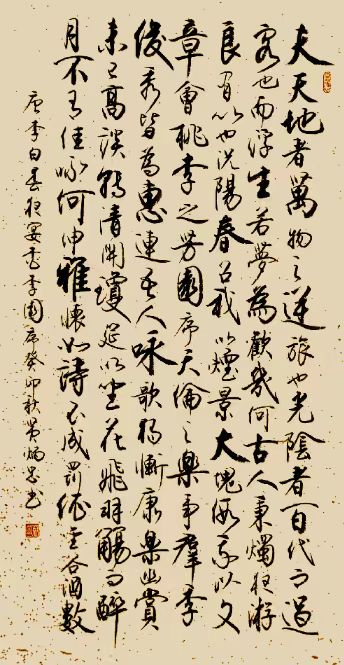 夫天地者萬物之逆旅也光陰者百代之過
客也而浮生若夢為歡幾何古人秉燭夜游
良有以也況陽春召我以煙景大塊假我以文
章會桃李之芳園序天倫之樂事群季
俊秀皆為惠連吾人詠歌獨慚康樂幽賞
未已高談轉清開瓊筵以坐花飛羽觴而醉
月不有佳詠何申雅懷如詩不成罰依金谷酒數
唐李白春夜宴桃李園序癸卯秋炳忠书